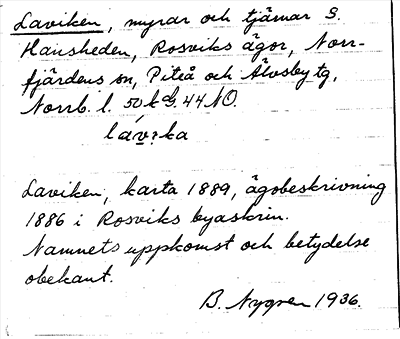 Laviken, myrar och tjärnar S.
Hansheden, Rosviks ägor, Norr-
fjärdens sn, Piteå och Älvsby tg,
Norrb. l. 50 k 44 NO.
Laviken, karta 1889, ägobeskrivning
1886 i Rosviks byaskrin.
Namnets uppkomst och betydelse
obekant.
B. Nygren 1936.